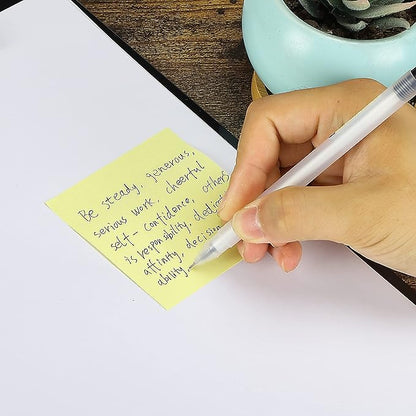 Be steady, generous,
serious work, cheerful
self-confidence, others
is responsibility, dedicat
affinity, decision
ability.